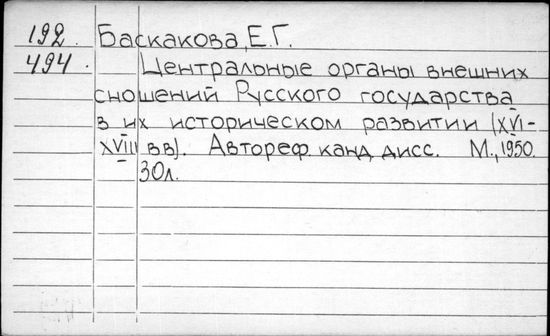 192. Баскакова, Е.Г.
494. Центральные органы внешних
сношений Русского государства
в их историческом развитии (XVI-
XVIII вв). Автореф. канд дисс. М., 1950.
30л.